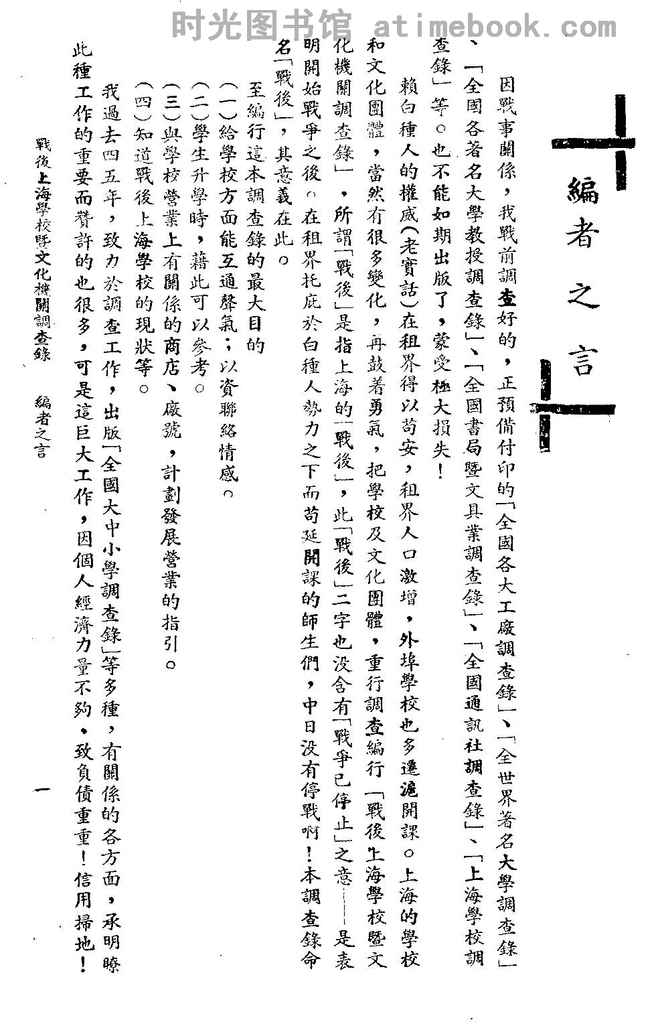 时光图书馆 atimebook.com
編者之言
因戰事關係，我戰前調查好的，正預備付印的「全國各大工廠調查錄」、「全世界著名大學調查錄」
、「全國各著名大學教授調查錄」、「全國書局暨文具業調查錄」、「全國通訊社調查錄」、「上海學校調
查錄」等。也不能如期出版了，蒙受極大損失！
賴白種人的權威（老實話）在租界得以苟安，租界人口激增，外埠學校也多遷滬開課。上海的學校
和文化團體，當然有很多變化，再鼓着勇氣，把學校及文化團體，重行調查編行「戰後上海學校暨文
化機關調查錄」，所謂「戰後」是指上海的「戰後」，此「戰後」二字也没含有「戰爭已停止」之意——是表
明開始戰爭之後。在租界托庇於白種人勢力之下而苟延開課的師生們，中日没有停戰啊！本調查錄命
名「戰後」，其意義在此。
至編行這本調查錄的最大目的
（一）給學校方面能互通聲氣；以資聯絡情感。
（二）學生升學時，藉此可以參考。
（三）與學校營業上有關係的商店、廠號，計劃發展營業的指引。
（四）知道戰後上海學校的現狀等。
我過去四五年，致力於調查工作，出版「全國大中小學調查錄」等多種，有關係的各方面，承明瞭
此種工作的重要而贊許的也很多，可是這巨大工作，因個人經濟力量不夠、致負債重重！信用掃地！
戰後上海學校暨文化機關調查錄 編者之言 一